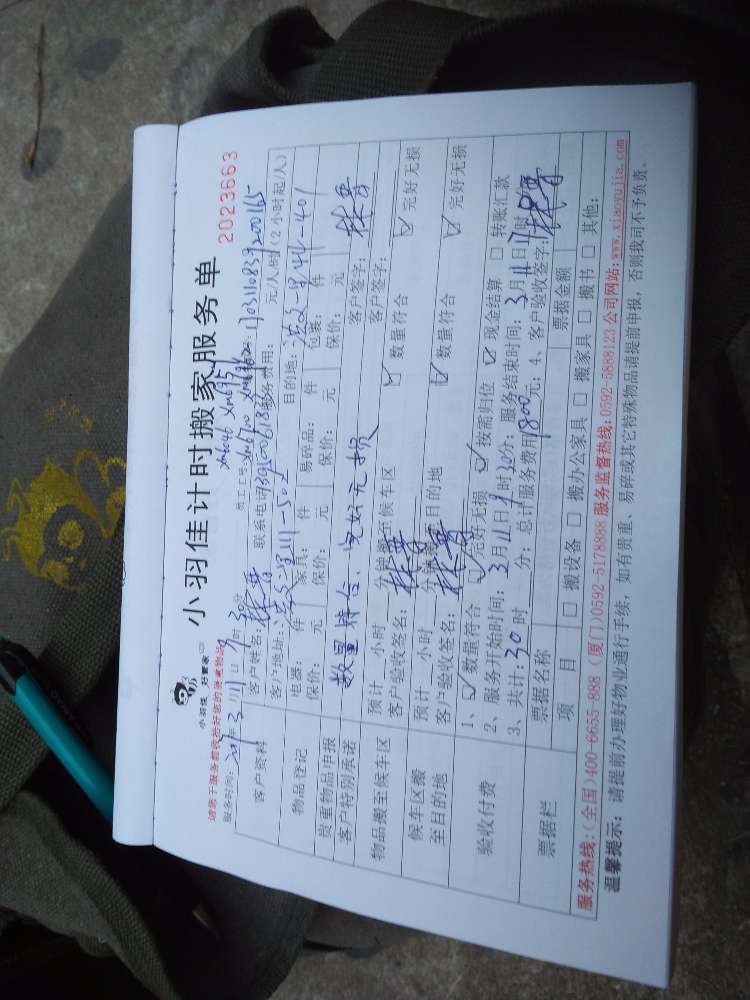 小羽佳计时搬家服务单
2023663
小羽佳 好管家
请您于服务前收拾好您的贵重物品
服务时间: 年3月11日9时30分
员工工号: xm6046 xm6695
客户资料
客户姓名:
联系电话:
服务费用: 元/人/时(2小时起/人)
客户地址:
目的地:
物品登记
电器: 件 家具: 件 易碎品: 件 包裹: 件
贵重物品申报
保价: 元 保价: 元 保价: 元 保价: 元
客户特别承诺
数量符合、完好无损
客户签字:
物品搬至候车区
预计 小时 分钟搬至候车区
客户签字:
客户验收签名:
数量符合 完好无损
候车区搬至目的地
预计 小时 分钟搬至目的地
客户验收签名:
数量符合 完好无损
验收付费
1、数量符合 完好无损 按需归位 现金结算 转账汇款
2、服务开始时间: 3月11日9时30分; 服务结束时间: 3月11日 时
3、共计: 30时 分; 总计服务费用 1800元; 4、客户验收签字:
票据栏
票据名称 票据金额
项目 搬设备 搬办公家具 搬家具 搬书 其他:
服务热线:(全国)400-6655-888 (厦门)0592-5178888 服务监督热线:0592-5888123 公司网站:www.xiaoyujia.com
温馨提示: 请提前办理好物业通行手续, 如有贵重、易碎或其它特殊物品请提前申报, 否则我司不予负责。